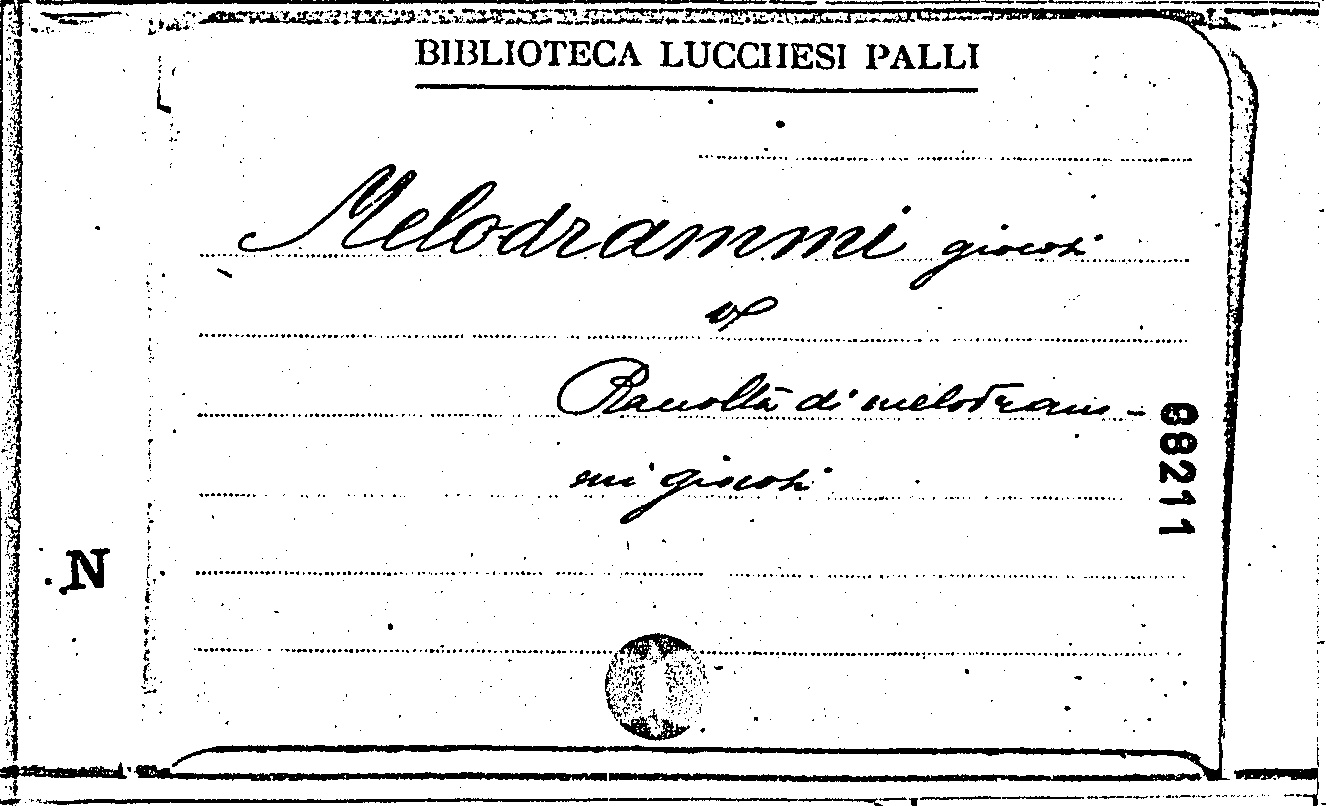 BIBLIOTECA LUCCHESI PALLI
Melodrammi giocosi
Raccolta di melodram-
mi giocosi
88211
N